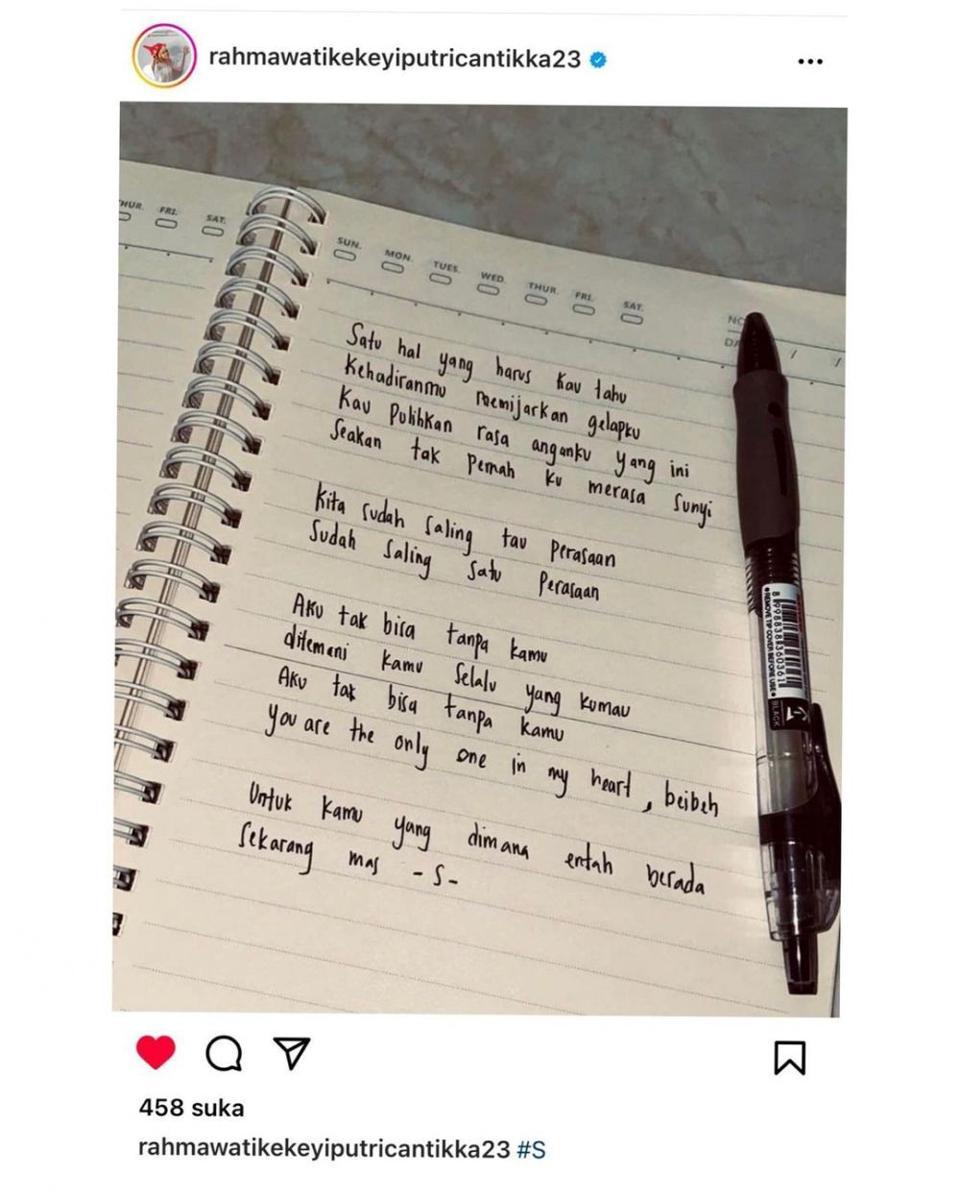 rahmawatikekeyiputricantikka23
HUR. FRI. SAT.
SUN. MON. TUES. WED. THUR. FRI. SAT.
/ /
Satu hal yang harus kau tahu
Kehadiranmu memijarkan gelapku
Kau pulihkan rasa anganku yang ini
Seakan tak pernah ku merasa sunyi
Kita sudah saling tau perasaan
Sudah saling satu perasaan
Aku tak bisa tanpa kamu
ditemani kamu selalu yang kumau
Aku tak bisa tanpa kamu
You are the only one in my heart, beibeh
Untuk kamu yang dimana entah berada
Sekarang mas -S-
8998838360361
•REMOVE TIP COVER BEFORE USE•
BLACK
458 suka
rahmawatikekeyiputricantikka23 #S